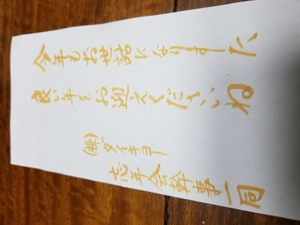 今年もお世話になりました
良い年をお迎えくださいね
㈱ダイキョー
忘年会幹事一同